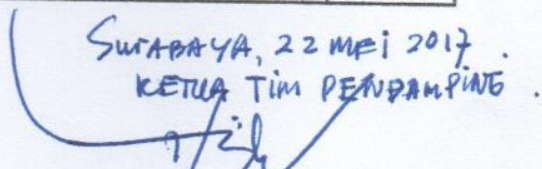 SURABAYA, 22 MEI 2017.
KETUA TIM PENDAMPING.